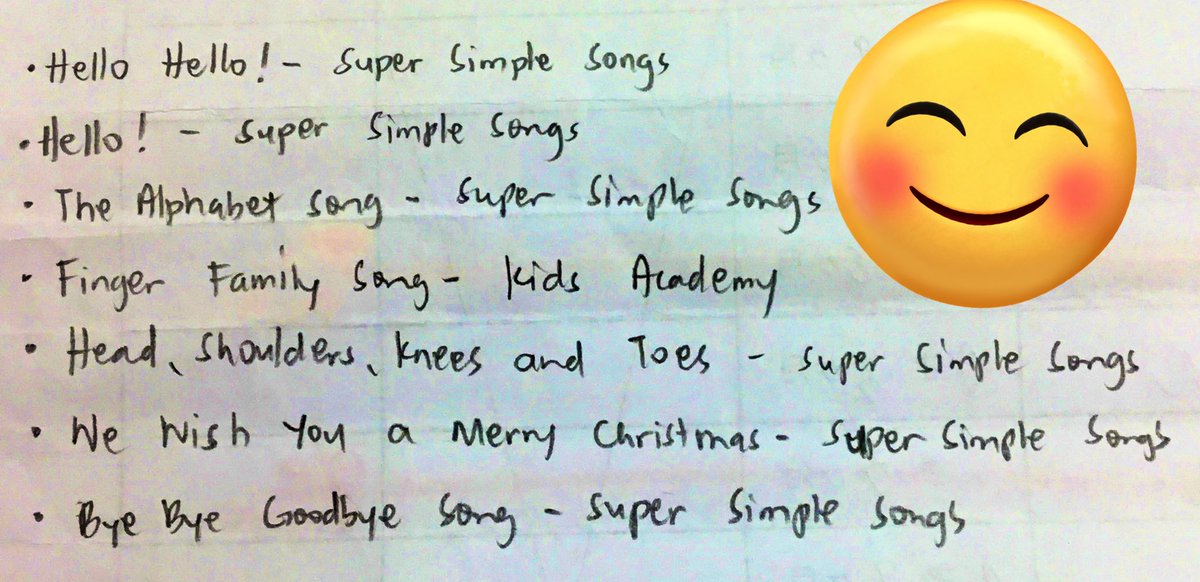 ・Hello Hello! - Super Simple Songs
・Hello! - Super Simple Songs
・The Alphabet Song - Super Simple Songs
・Finger Family Song - Kids Academy
・Head、Shoulders、Knees and Toes - Super Simple Songs
・We Wish You a Merry Christmas - Super Simple Songs
・Bye Bye Goodbye Song - Super Simple Songs